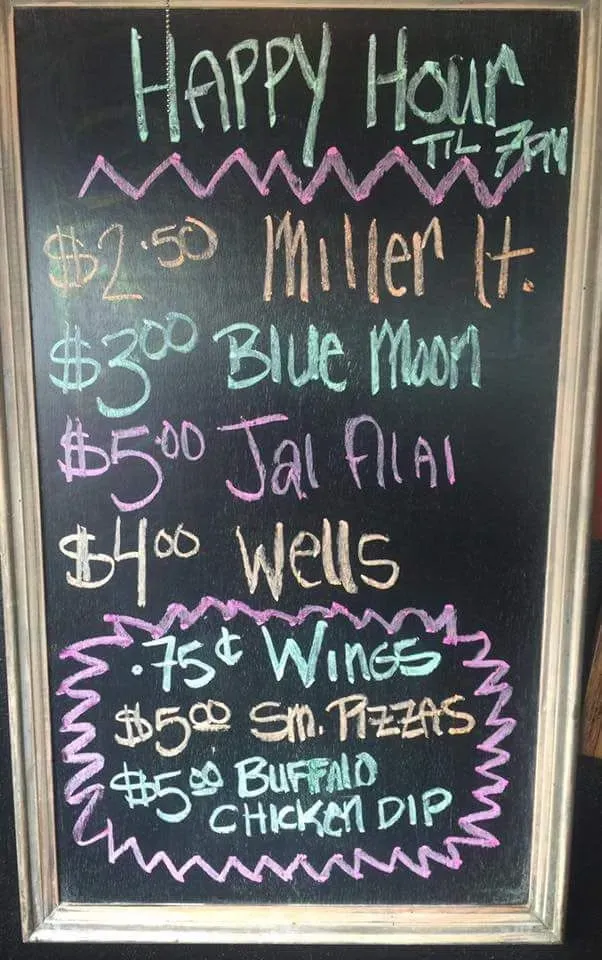 HAPPY Hour
TIL 7PM
$2.50 Miller lt.
$3.00 Blue Moon
$5.00 Jai Alai
$4.00 Wells
.75¢ WINGS
$5.00 Sm. PIZZAS
$5.00 BUFFALO
CHICKEN DIP